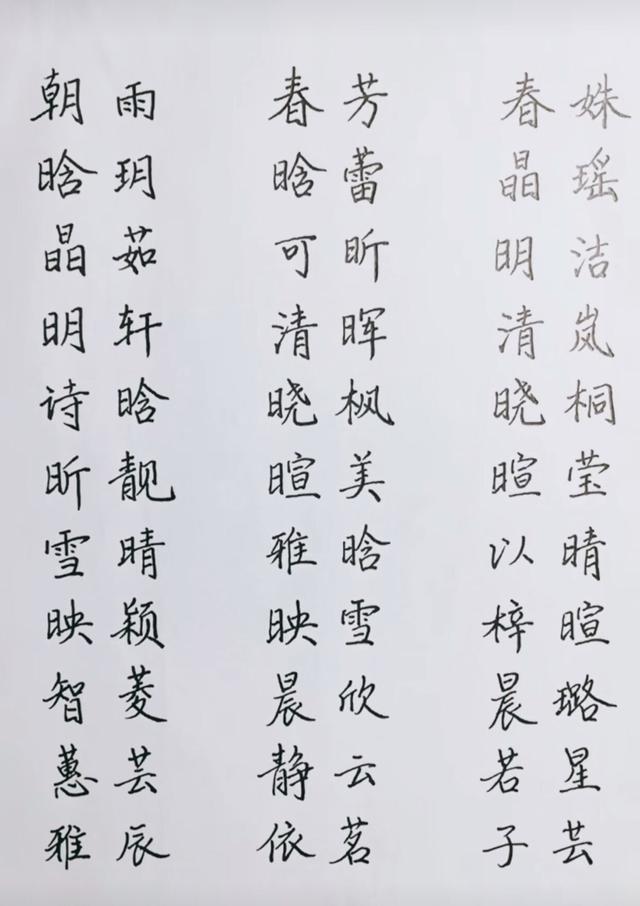 朝雨 春芳 春姝
晗玥 晗蕾 晶瑶
晶茹 可昕 明洁
明轩 清晖 清岚
诗晗 晓枫 晓桐
昕靓 暄美 暄莹
雪晴 雅晗 以晴
映颖 映雪 梓暄
智菱 晨欣 晨璐
蕙芸 静云 若星
雅辰 依茗 子芸